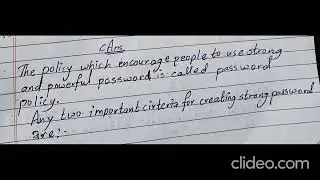 Ans
The policy which encourage people to use strong
and powerful password is called password
policy.
Any two important cirteria for creating strong password
are:-
clideo.com